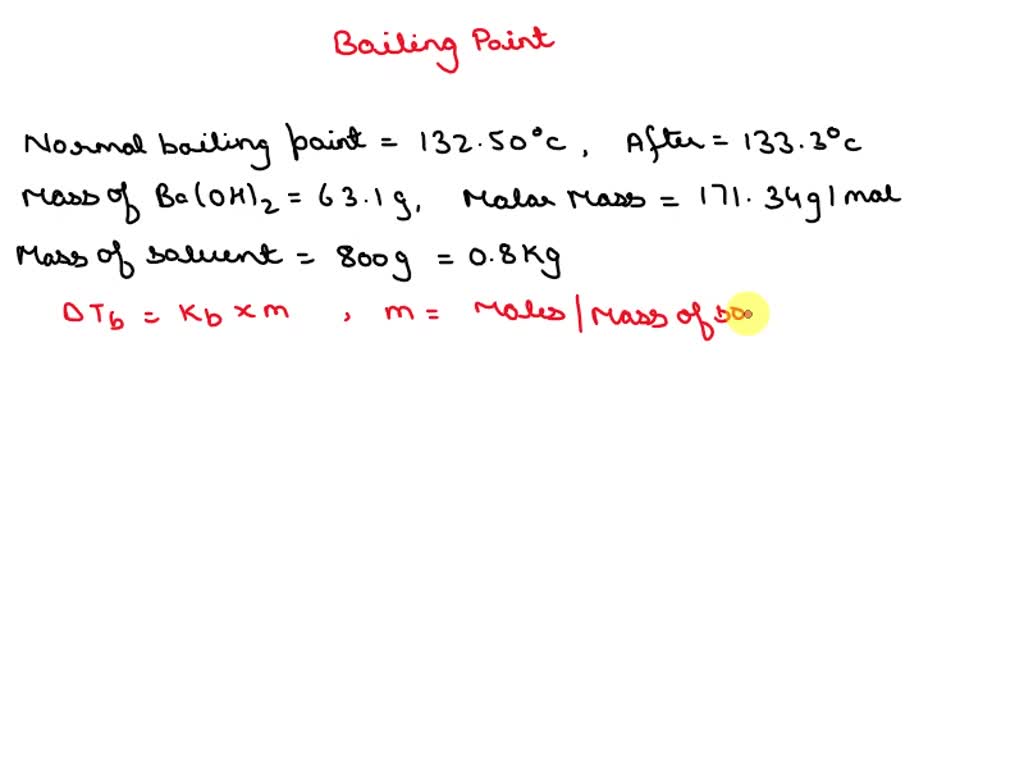 Boiling Point
Normal boiling point = 132.50°C, After = 133.3°C
Mass of Ba(OH)2 = 63.1g, Molar Mass = 171.34g|mol
Mass of solvent = 800g = 0.8Kg
ΔTb = Kb × m , m = Moles|Mass of so